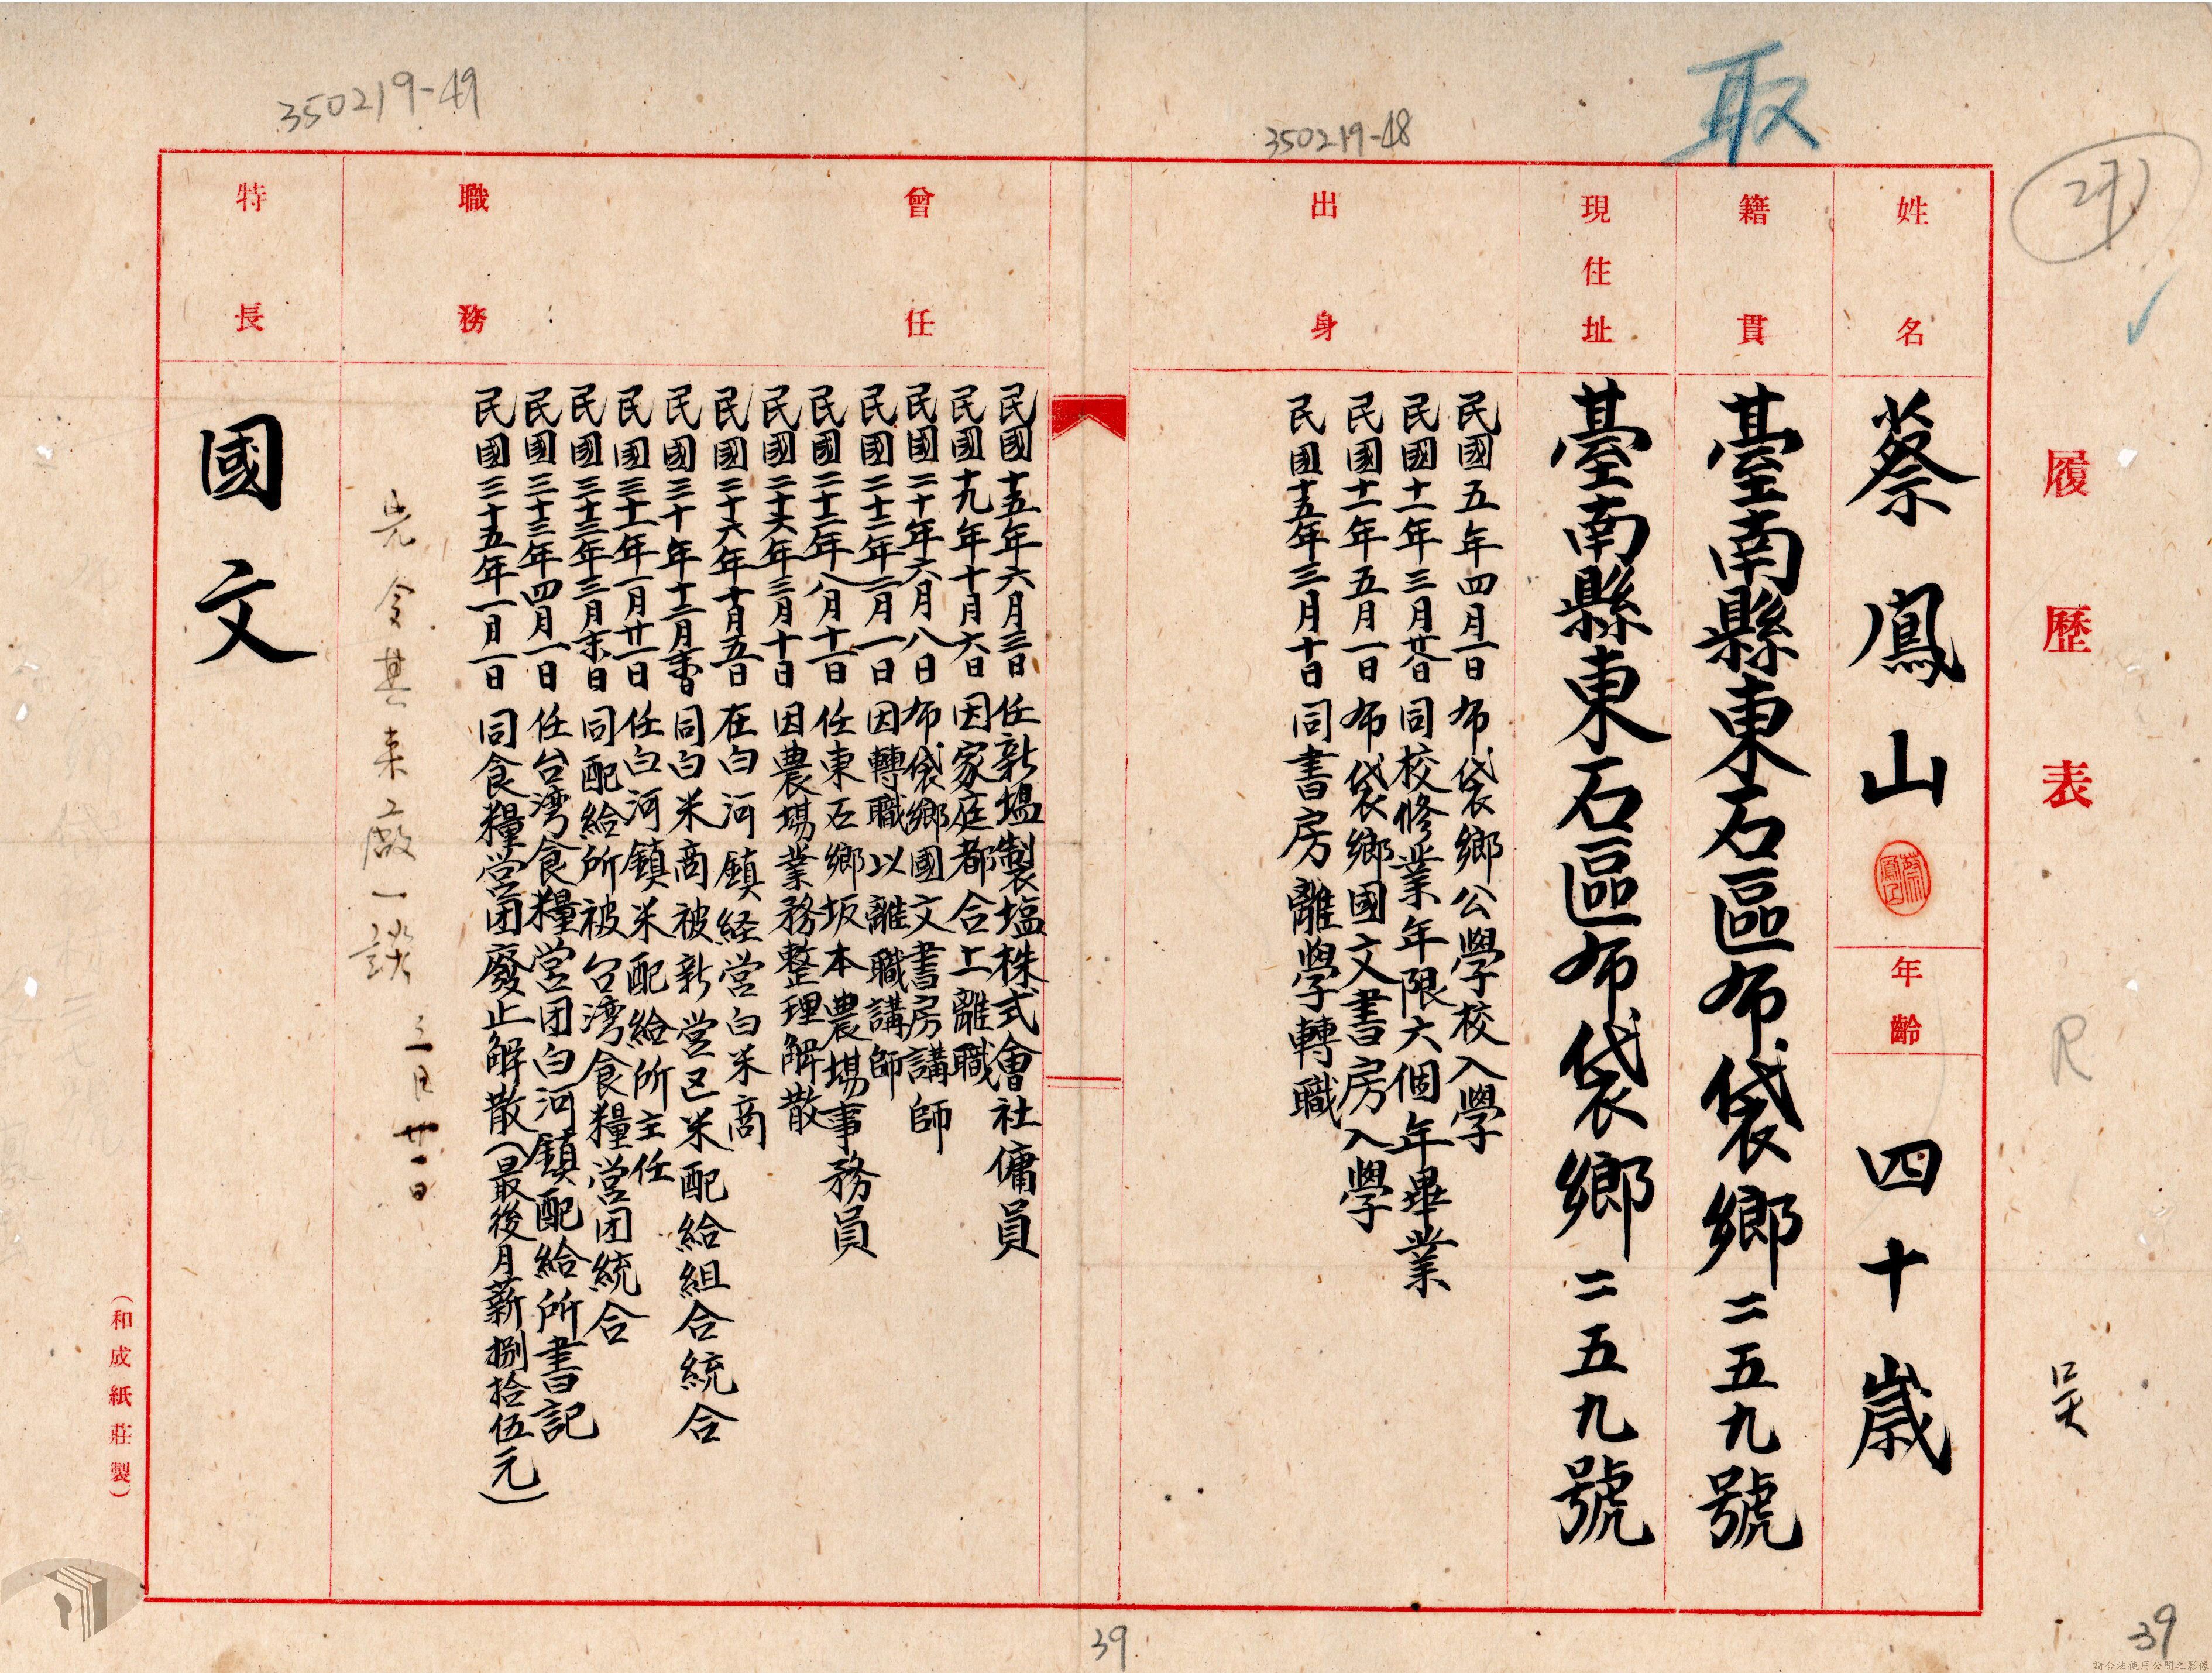 履歷表
姓名
蔡鳳山
年齡
四十歲
籍貫
臺南縣東石區布袋鄉二五九號
現住址
臺南縣東石區布袋鄉二五九號
出身
民國五年四月一日 布袋鄉公學校入學
民國十一年三月廿八日 同校修業年限六個年畢業
民國十一年五月一日 布袋鄉國文書房入學
民國十五年三月十日 同書房離學轉職
曾任職務
民國十五年六月三日 任新塭製塩株式會社傭員
民國十九年十月六日 因家庭都合上離職
民國二十年六月八日 布袋鄉國文書房講師
民國二十二年二月一日 因轉職以離職講師
民國二十二年八月十一日 任東石鄉坂本農場事務員
民國二十六年三月十日 因農場業務整理解散
民國二十六年十月五日 在白河鎮経営白米商
民國三十年十二月 同白米商被新営区米配給組合統合
民國三十一年一月廿一日 任白河鎮米配給所主任
民國三十三年三月末日 同配給所被台湾食糧営团統合
民國三十三年四月一日 任台湾食糧営团白河鎮配給所書記
民國三十五年一月一日 同食糧営团廢止解散(最後月薪捌拾伍元)
先令其来廠一談
三月廿一日
特長
國文
(和成紙莊製)
取
350219-48
350219-49
R
吴
39
39
請合法使用公開之影像